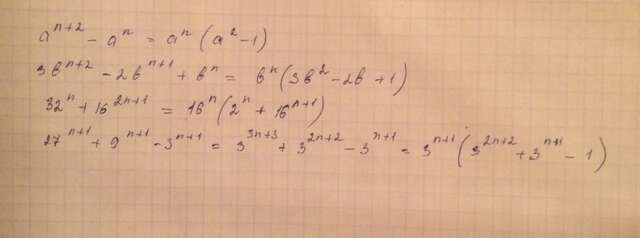 a^{n+2} - a^n = a^n (a^2 - 1)
3b^{n+2} - 2b^{n+1} + b^n = b^n (3b^2 - 2b + 1)
32^n + 16^{2n+1} = 16^n (2^n + 16^{n+1})
27^{n+1} + 9^{n+1} - 3^{n+1} = 3^{3n+3} + 3^{2n+2} - 3^{n+1} = 3^{n+1} (3^{2n+2} + 3^{n+1} - 1)